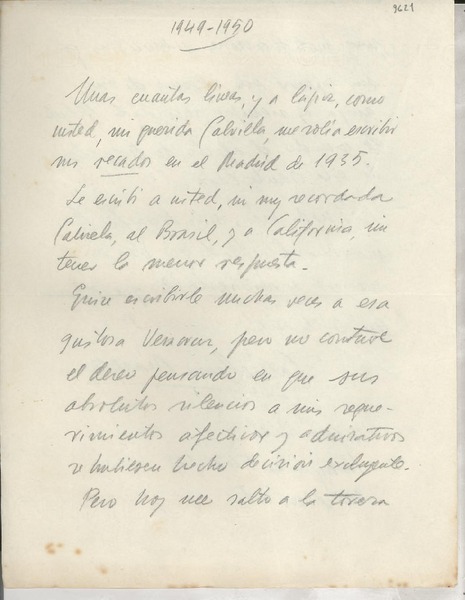 9621
1949-1950
Unas cuantas líneas, y a lápiz, como
usted, mi querida Gabriela, me solía escribir
sus recados en el Madrid de 1935.
Le escribí a usted, mi muy recordada
Gabriela, al Brasil, y a California, sin
tener la menor respuesta.
Quise escribirle muchas veces a esa
gustosa Veracruz, pero me contuve
el deseo pensando en que sus
absolutos silencios a mis reque-
rimientos afectivos y admirativos
se hubiesen hecho decisión excluyente.
Pero hoy me salto a la torera